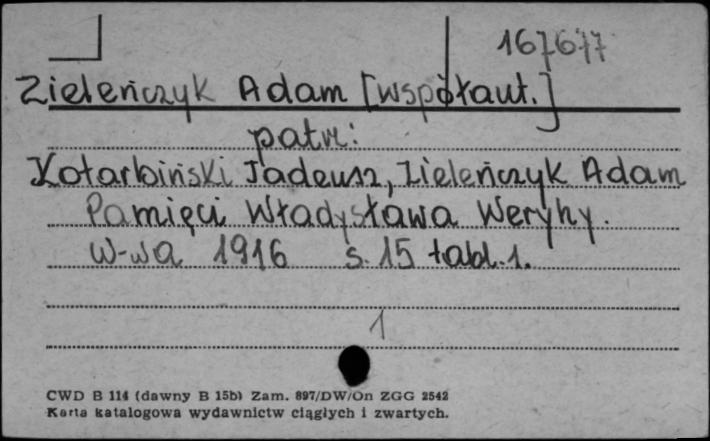 167677
Zieleńczyk Adam [współaut.]
patrz:
Kotarbiński Tadeusz, Zieleńczyk Adam
Pamięci Władysława Weryhy.
W-wa 1916 s. 15 tabl. 1.
1
CWD B 114 (dawny B 15b) Zam. 897/DW/On ZGG 2542
Karta katalogowa wydawnictw ciągłych i zwartych.